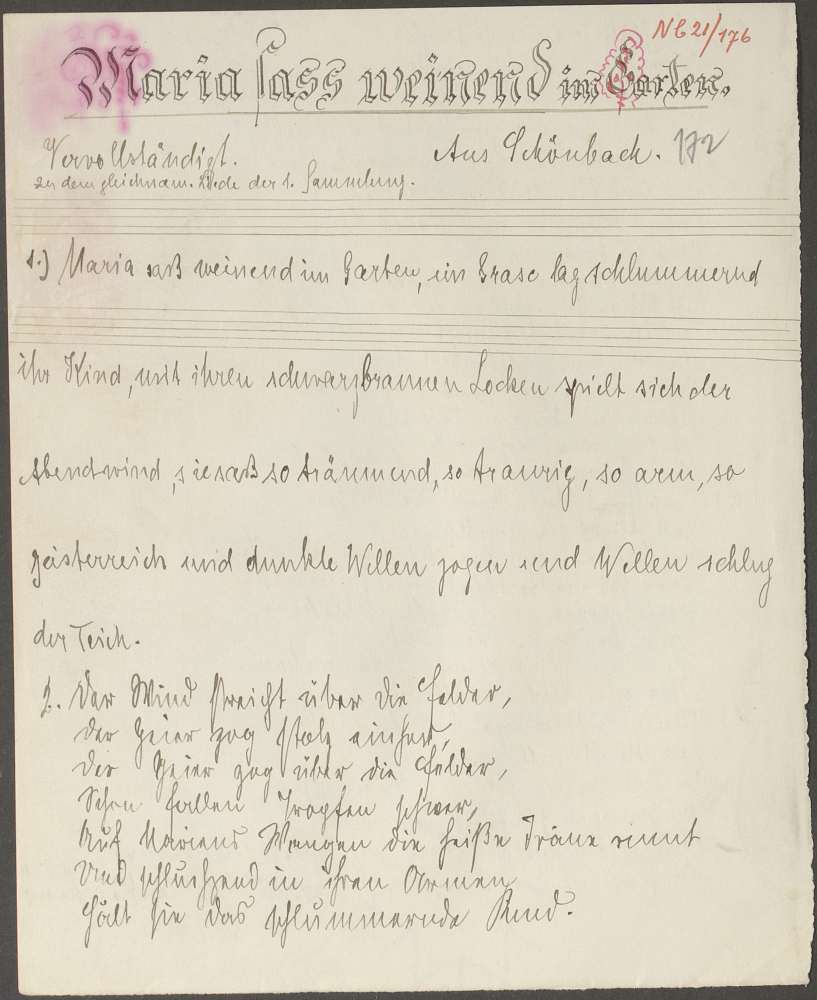 NL 21/176
Maria sass weinend im Garten.
Vervollständigt. Aus Schönbach. 172
zu dem gleichnam. Liede der 1. Sammlung.
1.) Maria saß weinend im Garten, im Grase lag schlummernd
ihr Kind, mit ihren schwarzbraunen Locken spielt sich der
Abendwind, sie saß so träumend, so traurig, so arm, so
geisterreich und dunkle Wellen zogen und Wellen schlug
der Teich.
2. Der Wind streicht über die Felder,
der Geier zog stolz einher,
Der Geier zog über die Felder,
Schon fallen Tropfen schwer,
Auf Mariens Wangen die heiße Träne rinnt
Und schluchzend in ihren Armen
hält sie das schlummernde Kind.